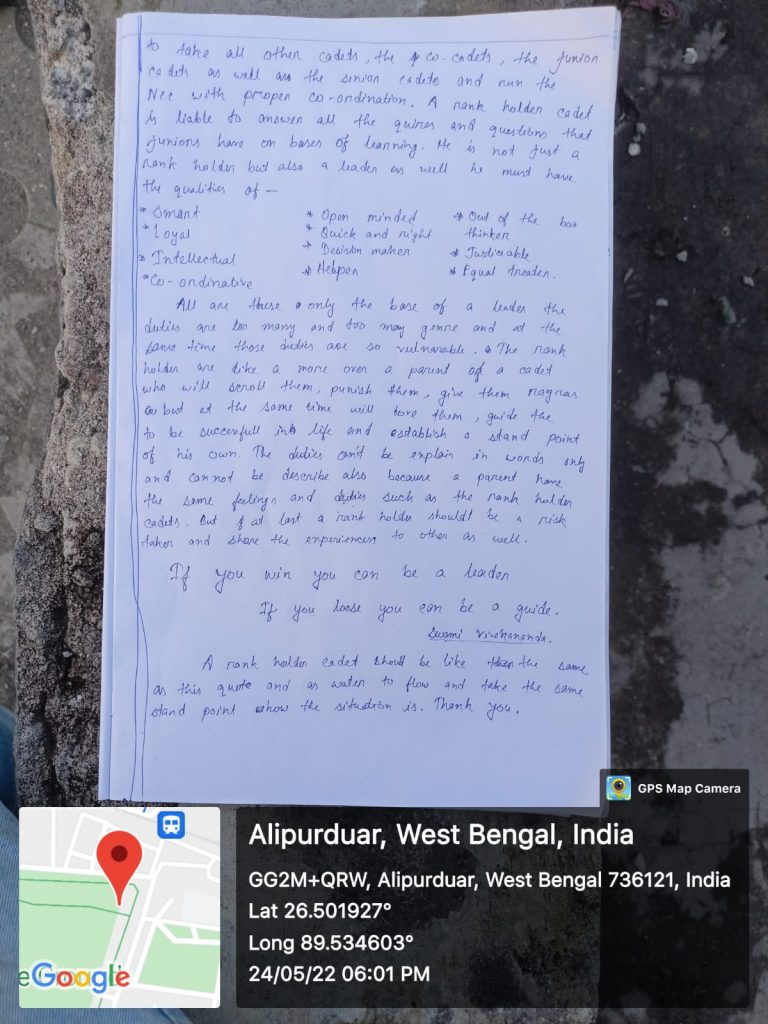 to take all other cadets, the co-cadets, the junior
cadets as well as the senior cadets and run the
Ncc with proper co-ordination. A rank holder cadet
is liable to answer all the quires and questions that
juniors have on bases of learning. He is not just a
rank holder but also a leader as well he must have
the qualities of —
* Smart
* Loyal
* Intellectual
* Co-ordinative
* Open minded
* Quick and right
* Decision maker
* Helper
* Out of the box
thinker
* Justiceable
* Equal treater.
All are these only the base of a leader the
duties are too many and too may genre and at the
same time those duties are so vulnarable. The rank
holder are like a more over a parent of a cadet
who will scroll them, punish them, give them ragras
but at the same time will love them, guide the
to be succerfull into life and establish a stand point
of his own. The duties can't be explain in words only
and can not be describe also because a parent have
the same feelings and duties such as the rank holder
cadets. But at last a rank holder shouldt be a risk
taker and share the experiences to other as well.
If you win you can be a leader
If you loose you can be a guide.
Swami Vivekananda.
A rank holder cadet should be like the same
as this quote and as water to flow and take the same
stand point how the situation is. Thank you.
GPS Map Camera
Alipurduar, West Bengal, India
GG2M+QRW, Alipurduar, West Bengal 736121, India
Lat 26.501927°
Long 89.534603°
24/05/22 06:01 PM
Google